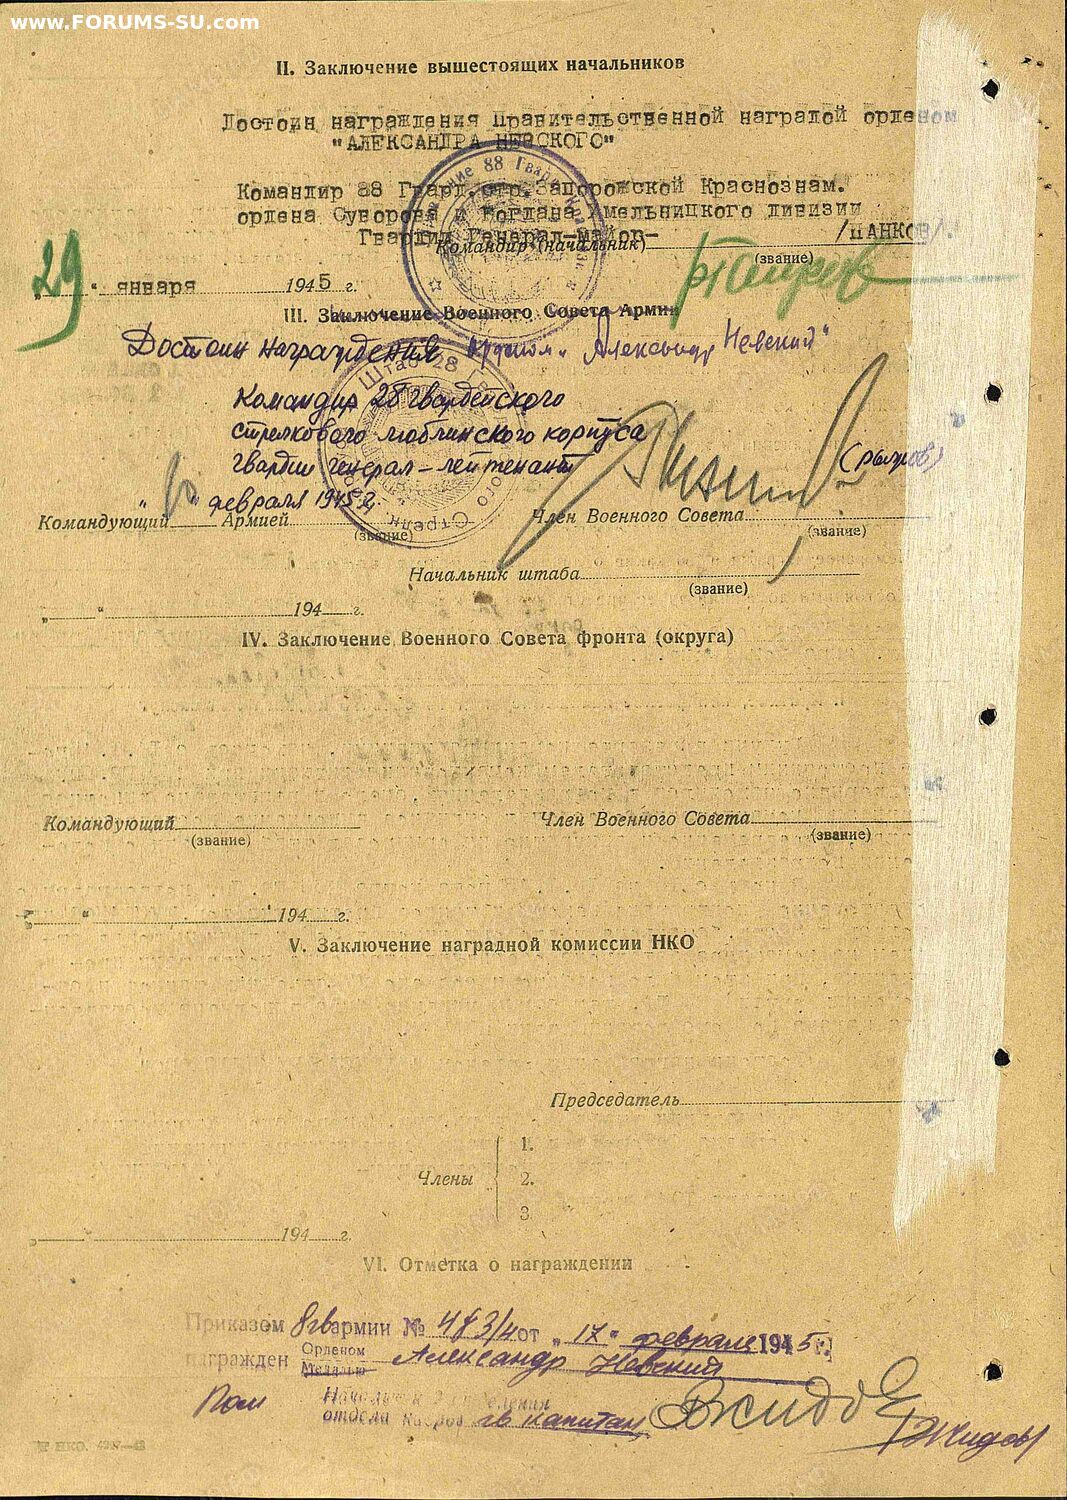 www.FORUMS-SU.com
II. Заключение вышестоящих начальников
Достоин награждения правительственной наградой орденом
"АЛЕКСАНДРА НЕВСКОГО"
Командир 88 Гвард. стр. Запорожской Краснознам.
ордена Суворова и Богдана Хмельницкого дивизии
Гвардии Генерал-майор-
/ПАНКОВ/.
Командир (начальник)
(звание)
"29" января 1945 г.
III. Заключение Военного Совета Армии
Достоин награждения орденом "Александр Невский"
Командир 28 гвардейского
стрелкового люблинского корпуса
гвардии генерал-лейтенант
(Рыжов)
" " февраля 1945 г.
Командующий Армией
(звание)
Член Военного Совета
(звание)
Начальник штаба
(звание)
" " 194 г.
IV. Заключение Военного Совета фронта (округа)
Командующий
(звание)
Член Военного Совета
(звание)
" " 194 г.
V. Заключение наградной комиссии НКО
Председатель
Члены
1.
2.
3.
" " 194 г.
VI. Отметка о награждении
Приказом 8 гв армии № 473/н от "17" февраля 1945 г.
награжден Орденом Александр Невский
Медалью
Пом Начальника отделения
отдела кадров гв капитан
Жидов